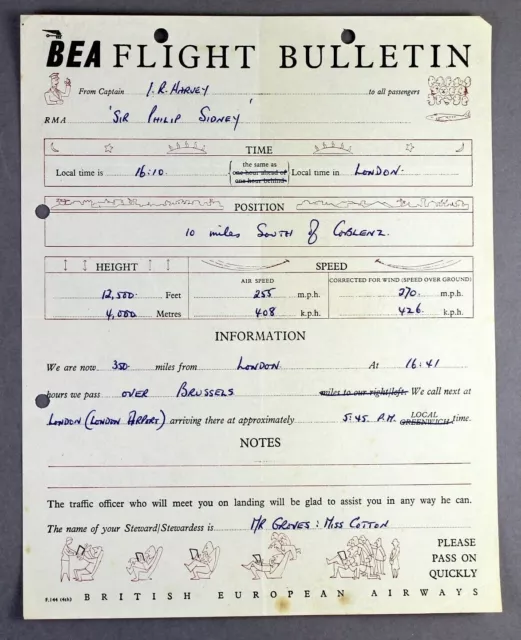 BEA FLIGHT BULLETIN
From Captain I.R. HARVEY to all passengers
RMA 'SIR PHILIP SIDNEY'
TIME
Local time is 16:10. the same as one hour ahead of one hour behind Local time in LONDON.
POSITION
10 miles SOUTH of COBLENZ.
HEIGHT SPEED
AIR SPEED CORRECTED FOR WIND (SPEED OVER GROUND)
12,500 Feet 255 m.p.h. 270. m.p.h.
4,000 Metres 408 k.p.h. 426. k.p.h.
INFORMATION
We are now 350 miles from LONDON. At 16:41
hours we pass OVER BRUSSELS miles to our right/left. We call next at
LONDON (LONDON AIRPORT) arriving there at approximately 5:45 P.M. LOCAL GREENWICH time.
NOTES
The traffic officer who will meet you on landing will be glad to assist you in any way he can.
The name of your Steward/Stewardess is MR GROVES : MISS COTTON
PLEASE
PASS ON
QUICKLY
F.144 (4th) BRITISH EUROPEAN AIRWAYS